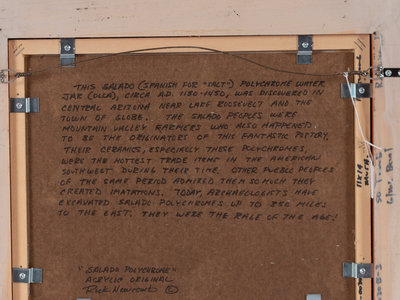 THIS SALADO (SPANISH FOR "SALT") POLYCHROME WATER
JAR (OLLA), CIRCA A.D. 1150-1450, WAS DISCOVERED IN
CENTRAL ARIZONA NEAR LAKE ROOSEVELT AND THE
TOWN OF GLOBE. THE SALADO PEOPLES WERE
MOUNTAIN VALLEY FARMERS WHO ALSO HAPPENED
TO BE THE ORIGINATORS OF THIS FANTASTIC POTTERY.
THEIR CERAMICS, ESPECIALLY THESE POLYCHROMES,
WERE THE HOTTEST TRADE ITEMS IN THE AMERICAN
SOUTHWEST DURING THEIR TIME. OTHER PUEBLO PEOPLES
OF THE SAME PERIOD ADMIRED THEM SO MUCH THEY
CREATED IMITATIONS. TODAY, ARCHAEOLOGISTS HAVE
EXCAVATED SALADO POLYCHROMES UP TO 250 MILES
TO THE EAST. THEY WERE THE RAGE OF THE AGE!
"SALADO POLYCHROME"
ACRYLIC ORIGINAL
Rick ©
11x14